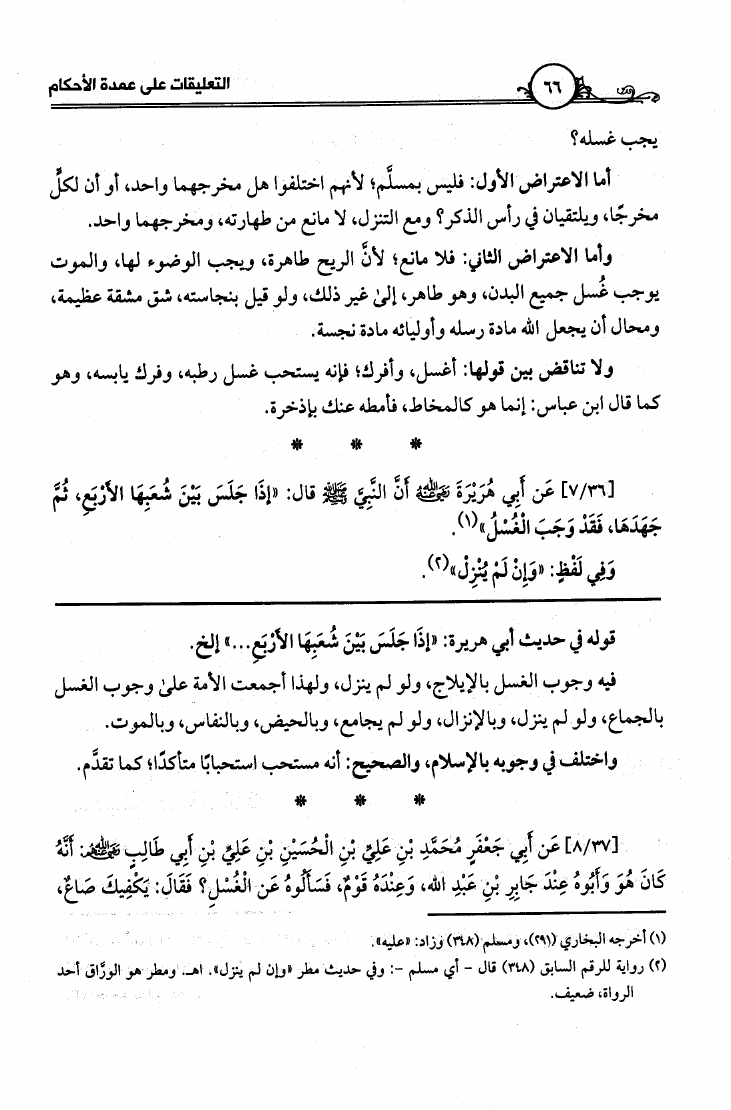 التعليقات على عمدة الأحكام
٦٦
يجب غسله؟
أما الاعتراض الأول: فليس بمسلَّم؛ لأنهم اختلفوا هل مخرجهما واحد، أو أن لكلٍّ
مخرجًا، ويلتقيان في رأس الذكر؟ ومع التنزل، لا مانع من طهارته، ومخرجهما واحد.
وأما الاعتراض الثاني: فلا مانع؛ لأنَّ الريح طاهرة، ويجب الوضوء لها، والموت
يوجب غُسل جميع البدن، وهو طاهر، إلىٰ غير ذلك، ولو قيل بنجاسته، شق مشقة عظيمة،
ومحال أن يجعل الله مادة رسله وأوليائه مادة نجسة.
ولا تناقض بين قولها: أغسل، وأفرك؛ فإنه يستحب غسل رطبه، وفرك يابسه، وهو
كما قال ابن عباس: إنما هو كالمخاط، فأمطه عنك بإذخرة.
* * *
[٧/٣٦] عَن أَبِي هُرَيْرَةَ رضي الله عنه أَنَّ النَّبِيَّ ﷺ قال: «إِذَا جَلَسَ بَيْنَ شُعَبِهَا الأَرْبَعِ، ثُمَّ
جَهَدَهَا، فَقَدْ وَجَبَ الْغُسْلُ»(١).
وَفِي لَفْظٍ: «وَإِنْ لَمْ يُنْزِلْ»(٢).
قوله في حديث أبي هريرة: «إِذَا جَلَسَ بَيْنَ شُعَبِهَا الأَرْبَعِ...» إلخ.
فيه وجوب الغسل بالإيلاج، ولو لم ينزل، ولهذا أجمعت الأمة علىٰ وجوب الغسل
بالجماع، ولو لم ينزل، وبالإنزال، ولو لم يجامع، وبالحيض، وبالنفاس، وبالموت.
واختلف في وجوبه بالإسلام، والصحيح: أنه مستحب استحبابًا متأكدًا؛ كما تقدَّم.
* * *
[٨/٣٧] عَن أَبِي جَعْفَرٍ مُحَمَّدِ بْنِ عَلِيِّ بْنِ الْحُسَيْنِ بْنِ عَلِيِّ بْنِ أَبِي طَالِبٍ رضي الله عنهم: أَنَّهُ
كَانَ هُوَ وَأَبُوهُ عِنْدَ جَابِرِ بْنِ عَبْدِ الله، وَعِنْدَهُ قَوْمٌ، فَسَأَلُوهُ عَن الْغُسْلِ؟ فَقَالَ: يَكْفِيكَ صَاعٌ،
(١) أخرجه البخاري (٢٩١)، ومسلم (٣٤٨) وزاد: «عليه».
(٢) رواية للرقم السابق (٣٤٨) قال - أي مسلم -: وفي حديث مطر «وإن لم ينزل». اهـ. ومطر هو الورَّاق أحد
الرواة، ضعيف.